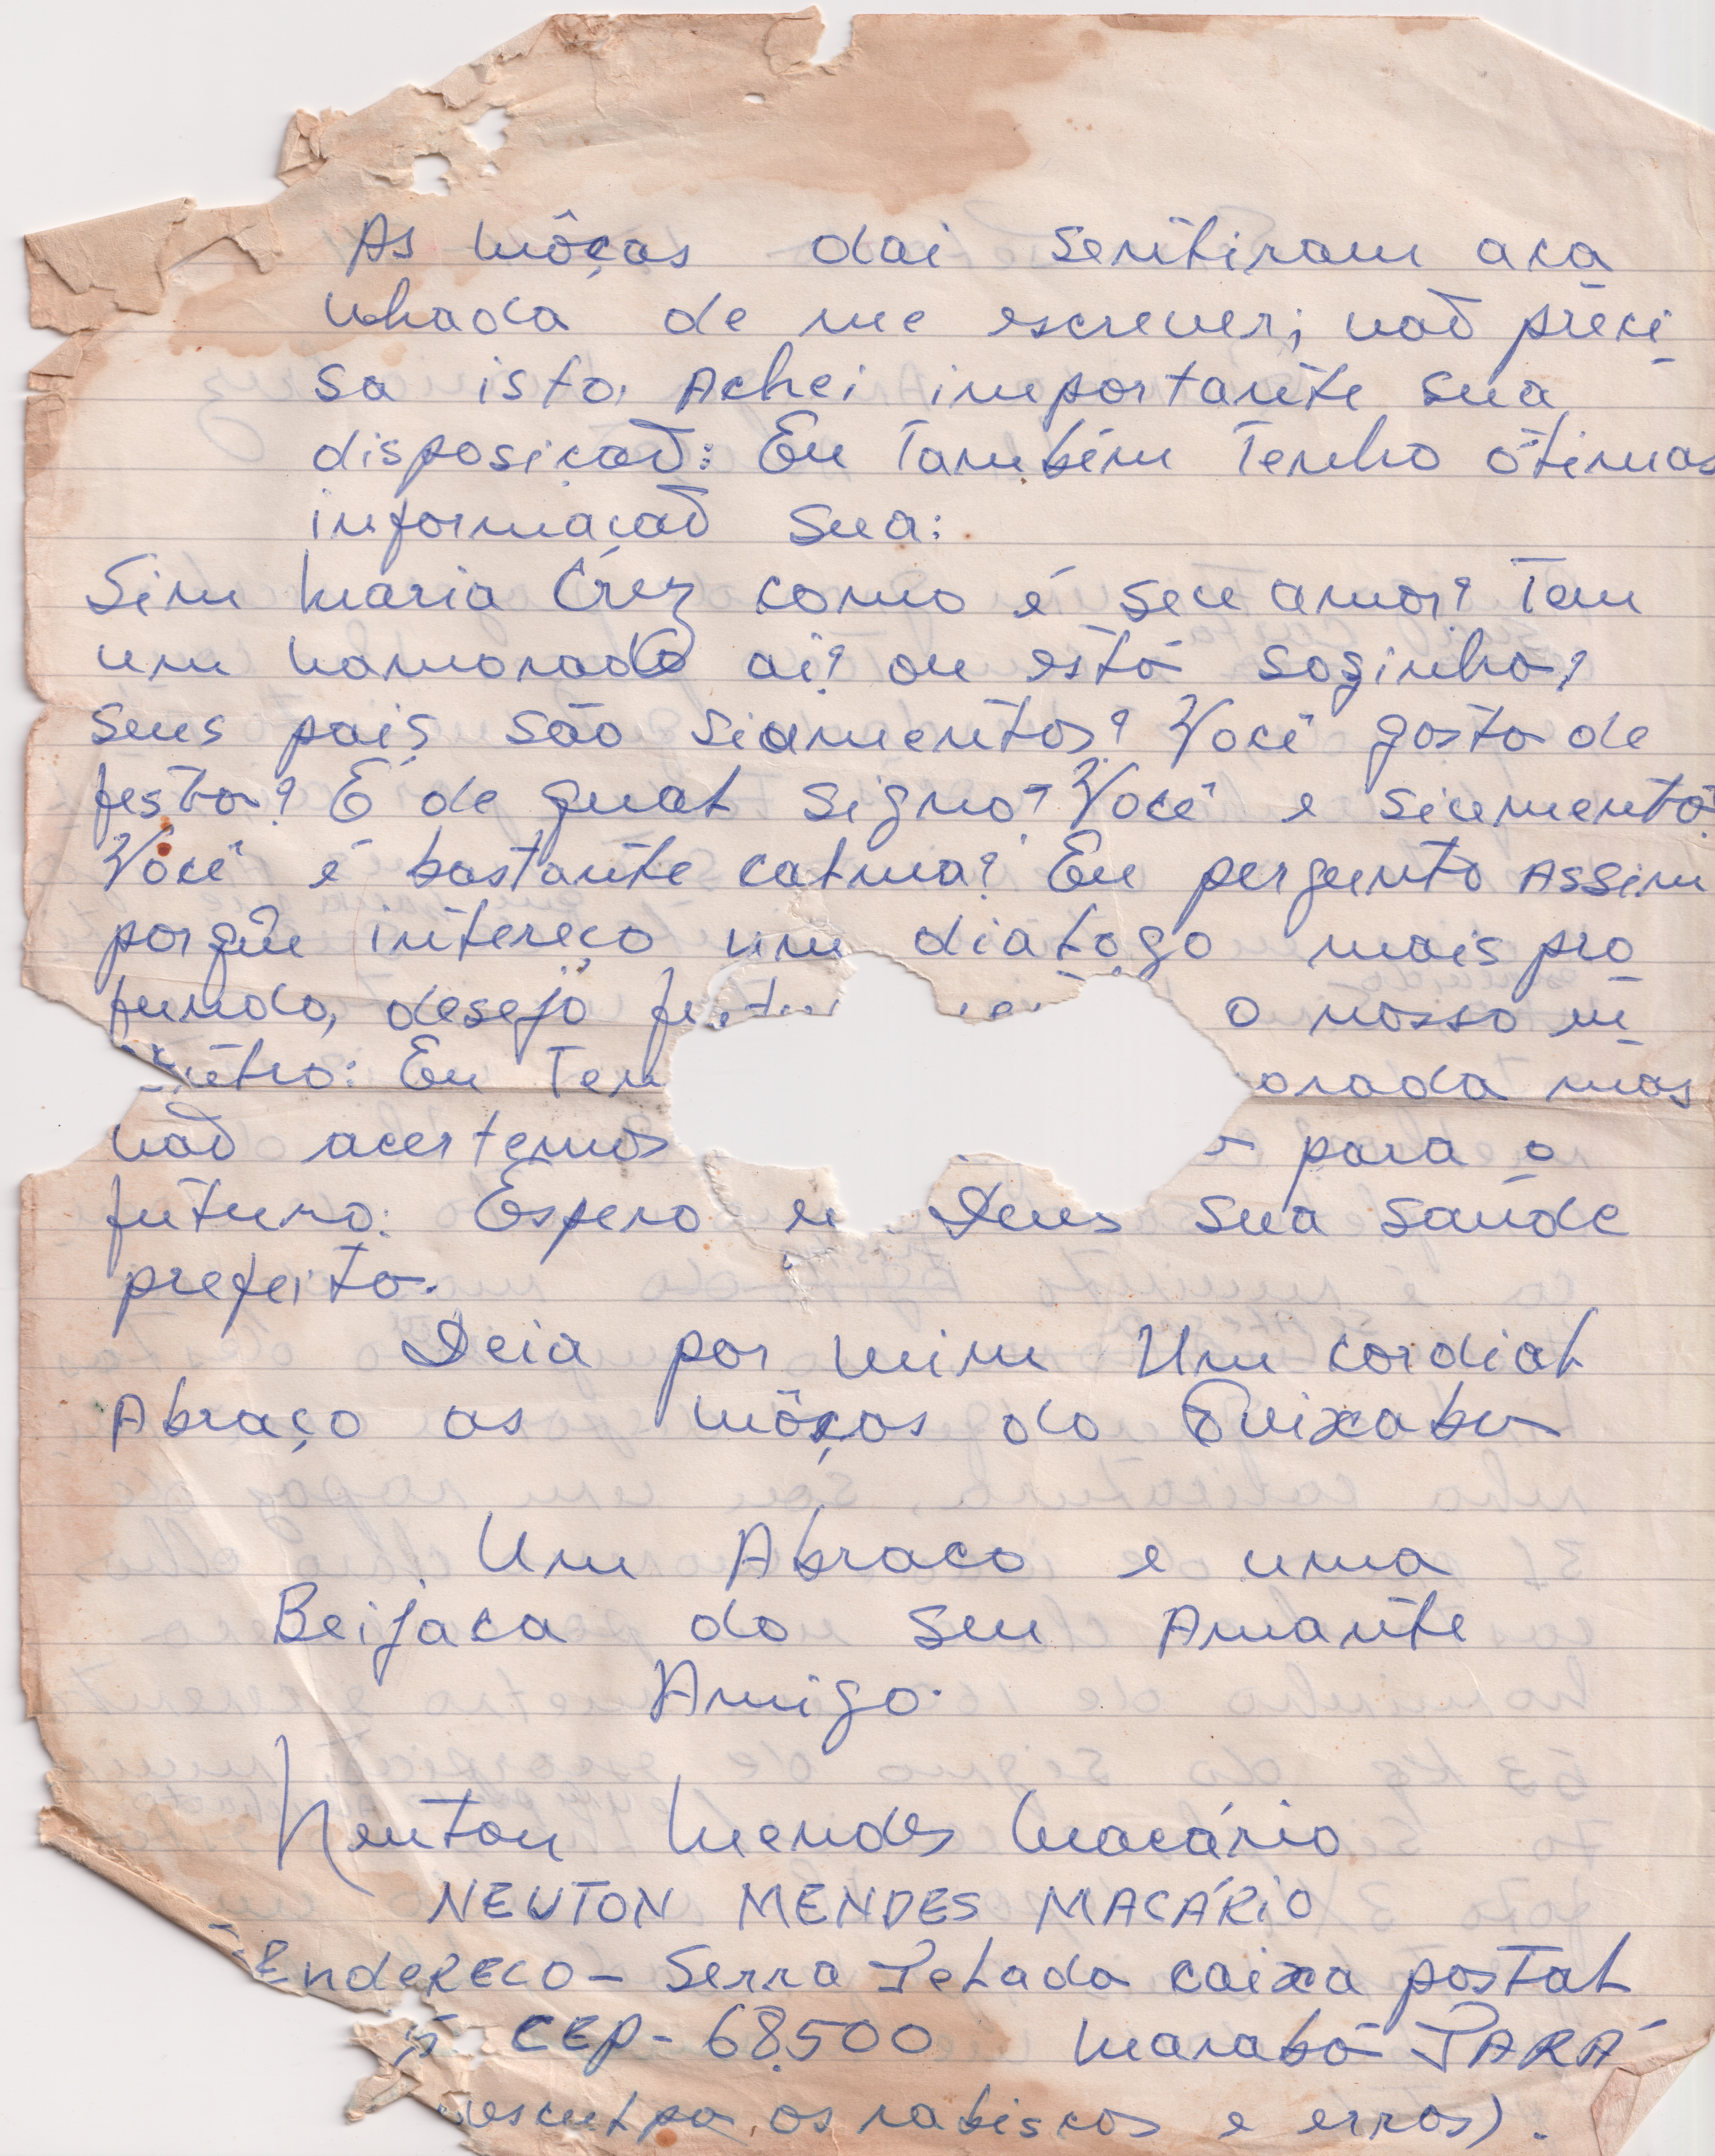 As môças dai sentiram aca
nhada de me escrever; naõ preci
sa isto. Achei importante sua
disposiçaõ: Eu Também Tenho ótimas
informaçaõ sua:
Sim Maria Crez como é seu amor? Tem
um namorado ai? ou está soginha?
Seus pais são siumentos? Você gosta de
festa? É de qual signo? Você e siumento?
Você é bastante calma? Eu pergunto Assim
porquê intereço um dialogo mais pro
fundo, desejo o nosso in
Eu Ten orada mas
naõ acertemos para o
futuro: Espero Deus sua saúde
prefeita.
Deia por mim Um cordial
Abraço as môças do Quixaba
Um Abraco e uma
Beijaca do seu Amante
Amigo.
Newton Mendes Macário
NEWTON MENDES MACÁRiO
EndeREÇO - Serra Pelada caixa postal
5 CEP - 68.500 Marabá PARÁ
desculpa os rabiscos e erros).